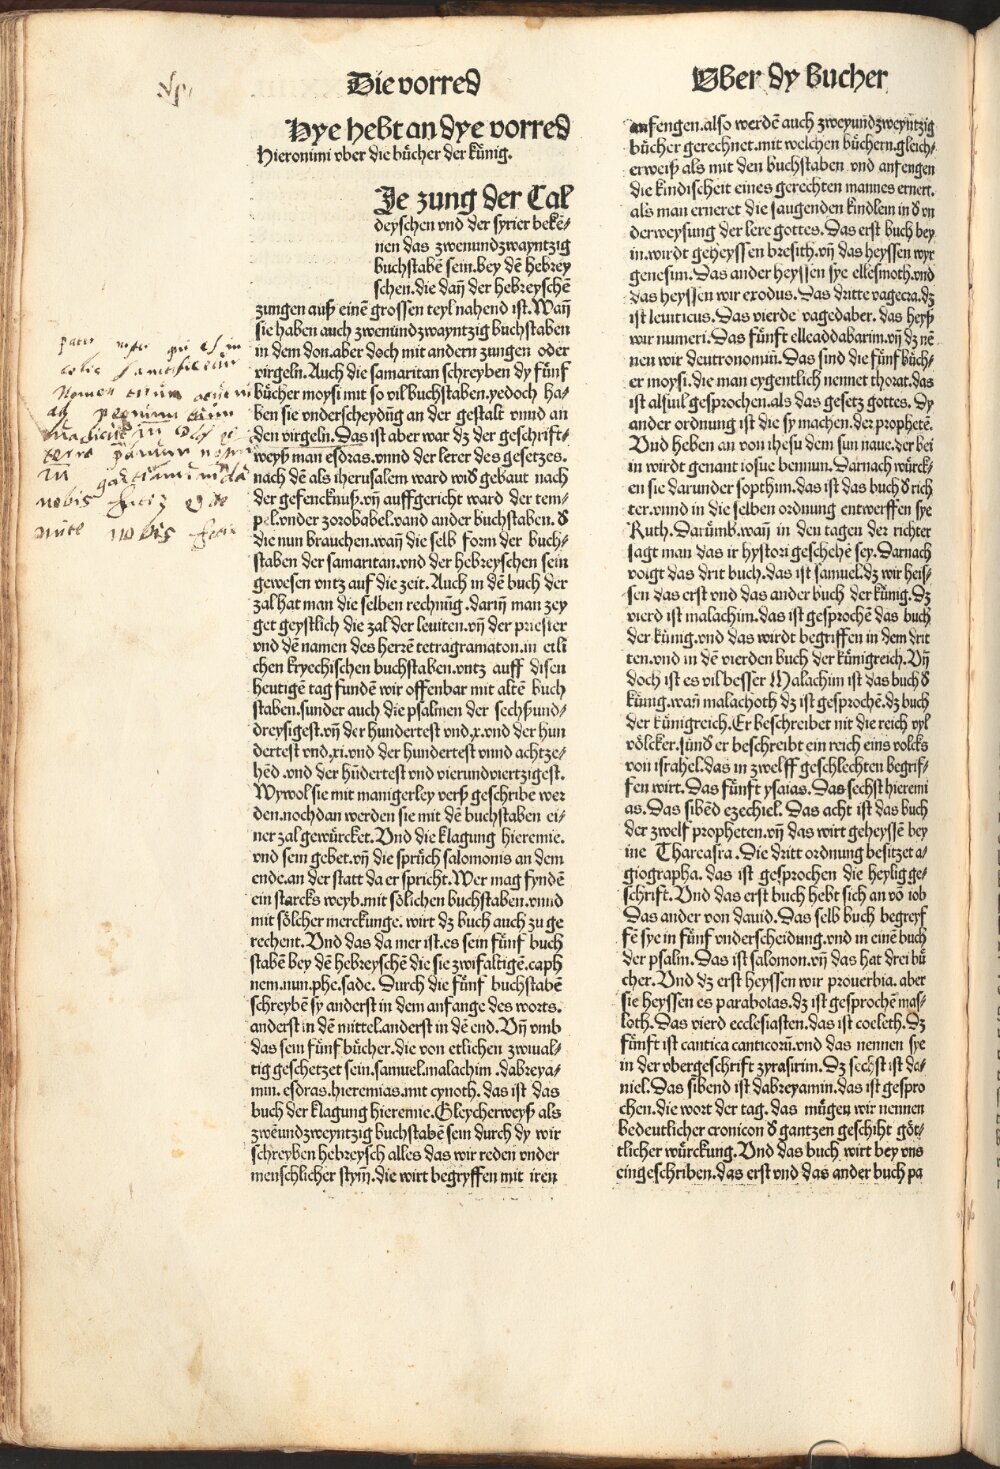 Die vorred
Vber dy bucher
Hye hebt an dye vorred
Hieronimi vber die bücher der künig.
Je zung der Cal
deyschen vnd der syrier bekē⸗
nen das zwenundzwayntzig
buchstabē sein.bey dē hebrey
schen.die dañ der hebreyschē
zungen auß einē grossen teyl nahend ist.Wañ
sie haben auch zwenundzwayntzig buchstaben
in dem don.aber doch mit andern zungen oder
virgeln.Auch die samaritan schreyben dy fünf
bücher moysi mit so vil buchstaben.yedoch ha⸗
ben sie vnderscheydūg an der gestalt vnnd an
den virgeln.Das ist aber war dz der geschrift⸗
weyß man esdras.vnnd der lerer des gesetzes.
nach dē als iherusalem ward wid gebaut nach
der gefencknuß.vñ auffgericht ward der tem⸗
pel.vnder zorobabel.vand ander buchstaben.d
die nun brauchen.wañ die selb form der buch⸗
staben der samaritan.vnd der hebreyschen sein
gewesen vntz auf die zeit.Auch in dē buch der
zal hat man die selben rechnūg.dariñ man zey
get geystlich die zal der leuiten.vñ der priester
vnd dē namen des herrē tetragramaton.in etli
chen kryechischen buchstaben.vntz auff disen
heutigē tag fundē wir offenbar mit altē buch
staben.sunder auch die psalmen der sechßund⸗
dreysigest.vñ der hundertest vnd.x.vnd der hun
dertest vnd.xi.vnd der hundertest vnnd achtze⸗
hēd.vnd der hūdertest vnd vierundviertzigest.
Wywol sie mit manigerley verß geschribē wer
den.nochdan werden sie mit dē buchstaben ei⸗
ner zal gewürcket.Vnd die klagung hieremie.
vnd sein gebet.vñ die sprüch salomonis an dem
ende.an der statt da er spricht.Wer mag fyndē
ein starcks weyb.mit sölichen buchstaben.vnnd
mit sölcher merckunge. wirt dz buch auch zu ge
rechent.Vnd das da mer ist.es sein fünf buch
stabē bey dē hebreyschē die sie zwifaltigē.caph
nem.nun.phe.sade. Durch die fünf buchstabē
schreyben sy anderst in dem anfange des worts.
anderst in dē mittel.anderst in dē end.Vñ vmb
das sein fünf bücher.die von etlichen zwiual⸗
tig geschetzet sein.samuel.malachim .dabreya⸗
min. esdras.hieremias.mit cynoth. das ist das
buch der klagung hieremie.Gleycherweyß als
zwēundzweyntzig buchstabē sein durch dy wir
schreyben hebreysch alles das wir reden vnder
menschlicher stym̄.die wirt begryffen mit iren
anfengen.also werdē auch zweyundzweyntzig
bücher gerechnet.mit welchen büchern.gleich⸗
erweiß als mit den buchstaben vnd anfengen
die kindischeit eines gerechten mannes ernert.
als man erneret die saugenden kindlein in d vn
derweysung der lere gottes.Das erst buch bey
in.wirdt geheyssen bresith.vñ das heyssen wyr
genesim.Das ander heyssen sye ellesmoth.vnd
das heyssen wir exodus.Das dritte vagecra.dz
ist leuiticus.Das vierde vagedaber. das heyß
wir numeri.Das fünfft elleaddabarim.vñ dz nē
nen wir deutronomiū.Das sind die fünf büch⸗
er moysi.die man eygentlich nennet thorat.das
ist alsuil gesprochen.als das gesetz gottes. Dy
ander ordnung ist.die sy machen.der prophetē.
Vnd heben an von ihesu dem sun naue.der bei
in wirdt genant iosue bennun.Darnach würck⸗
en sie darunder sopthim.das ist das buch d rich
ter.vnnd in die selben ordnung entwerffen sye
Ruth.Darumb.wañ in den tagen der richter
sagt man das ir hystori geschehē sey.Darnach
voigt das drit buch.das ist samuel.dz wir heis⸗
sen das erst vnd das ander buch der künig.Dz
vierd ist malachim.das ist gesprochē das buch
der künig.vnd das wirdt begriffen in dem drit
ten.vnd in dē vierden buch der künigreich.Vñ
doch ist es vil besser Malachim ist das buch d
künig.wañ malachoth dz ist gesprochē.dz buch
der künigreich.Er beschreibet nit die reich vyl
völcker.sūnd er beschreibt ein reich eins volcks
von israhel.das in zwelff geschlechten begrif⸗
fen wirt.Das fünft ysaias.Das sechst hieremi
as.Das sibēd ezechiel. Das acht ist das buch
der zwelf propheten.vñ das wirt geheyssē bey
ine Thareasra.Die dritt ordnung besitzet a⸗
giographa. das ist gesprochen die heylig ge⸗
schrift.Vnd das erst buch hebt sich an vō iob
Das ander von dauid.Das selb buch begreyf
fē sye in fünf vnderscheidung.vnd in einē buch
der psalm.Das ist salomon.vñ das hat drei bü
cher.Vnd dz erst heyssen wir prouerbia. aber
sie heyssen es parabolas.dz ist gesprochē mas⸗
loth.Das vierd ecclesiasten.das ist coeleth.Dz
fünft ist cantica canticorū.vnd das nennen sye
in der vbergeschrift zyrasirim.Dz sechst ist da⸗
niel.Das sibend ist dabreyamin.das ist gespro
chen.die wort der tag. das mügen wir nennen
bedeutlicher cronicon d gantzen geschiht göt⸗
tlicher würckung.Vnd das buch wirt bey vns
eingeschriben.das erst vnd das ander buch pa
pater noster qui es in
celis sanctificetur
Nomen tuum
nobis
nobis